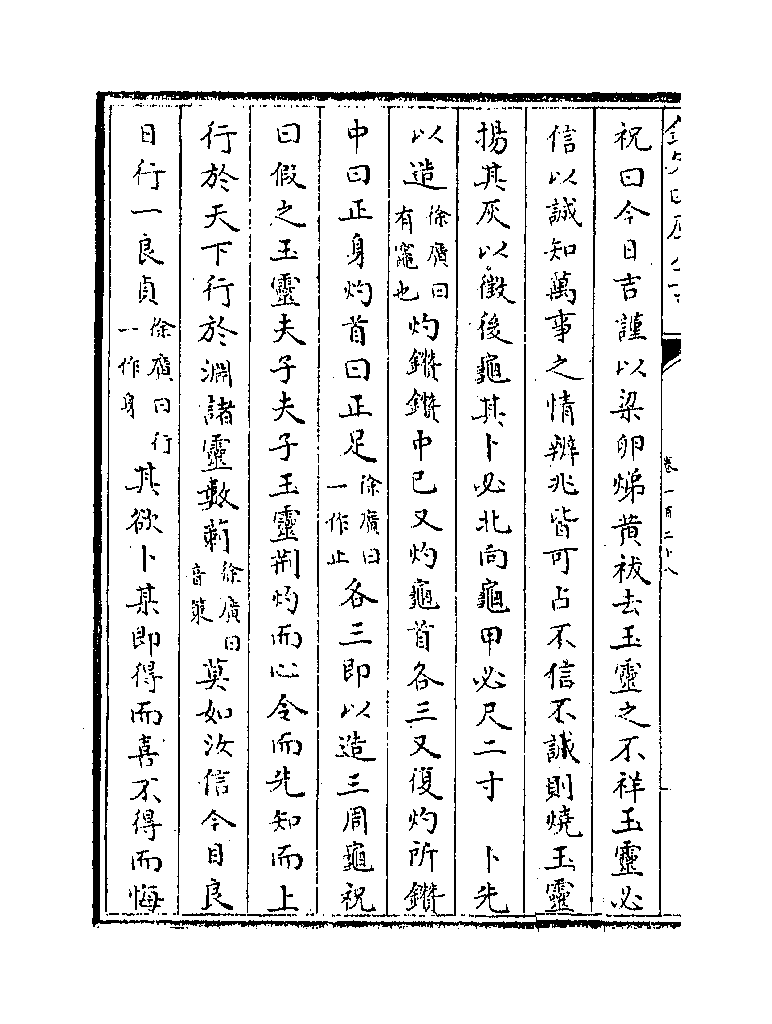 卷一百二十八
祝曰今日吉謹以梁卵焍黄祓去玉靈之不祥玉靈必
信以誠知萬事之情辨兆皆可占不信不誠則燒玉靈
揚其灰以徵後龜其卜必北向龜甲必尺二寸　卜先
以造徐廣曰有竈也灼鑽鑽中已又灼龜首各三又復灼所鑽
中曰正身灼首曰正足徐廣曰一作止各三即以造三周龜祝
曰假之玉靈夫子夫子玉靈荆灼而心令而先知而上
行於天下行於淵諸靈數莿徐廣曰音策莫如汝信今日良
日行一良貞徐廣曰行一作身其欲卜某即得而喜不得而悔